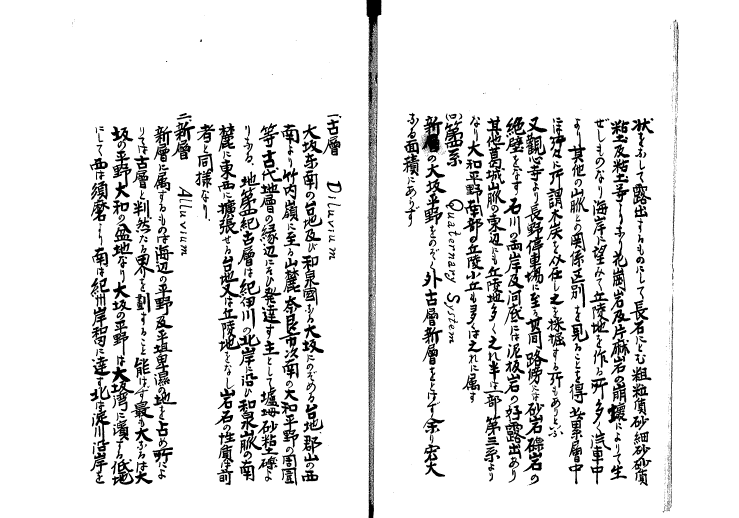 状をなして露出するものにして長石にとむ粗粒質砂細砂質
粘土及粘土等よりなり花崗岩及片麻岩の崩壊によりて生
ぜしものなり海岸に望みて丘陵地を作る所多く汽車中
より其他の山脈との関係区別を見ることを得 岩累層中
には所々に所謂木炭を介在し之を採掘する所もありと云ふ
又観心寺より長野停車場に至る其間路傍には砂岩礫岩の
絶壁をなす石川の両岸及河底には泥板岩の好露出あり
其他葛城山脈の東辺にも丘陵地多くこれ半は一部第三系より
なり大和平野南部の丘陵小丘も多くは之れに属す
(ハ)第四系 Quaternary System
新層の大坂平野をのぞく外古層新層をとはず余り宏大
なる面積にありず
(一)古層 Diluvium
大坂東南の台地及び和泉国なる大坂にのぞめる台地郡山の西
南より竹内嶺に至る山麓奈良市以南の大和平野の周囲
等古代地層の縁辺にそひ発達す主として壚坶砂粘土礫よ
りなる、地第四紀古層は紀伊川の北岸に沿ひ和泉山脈の南
麓に東西に擴張せる台地又は丘陵地をなし岩石の性質は前
者と同様なり
(二)新層 Alluvium
新層に属するものは海辺の平野及平坦卑濕の地を占め所によ
りては古層と判然たる界を劃すること能はず最も大なるは大
坂の平野大和の盆地なり大坂の平野は大坂湾に濱する低地
にして西は須磨より南は紀州岸和に達す北は淀川沿岸を